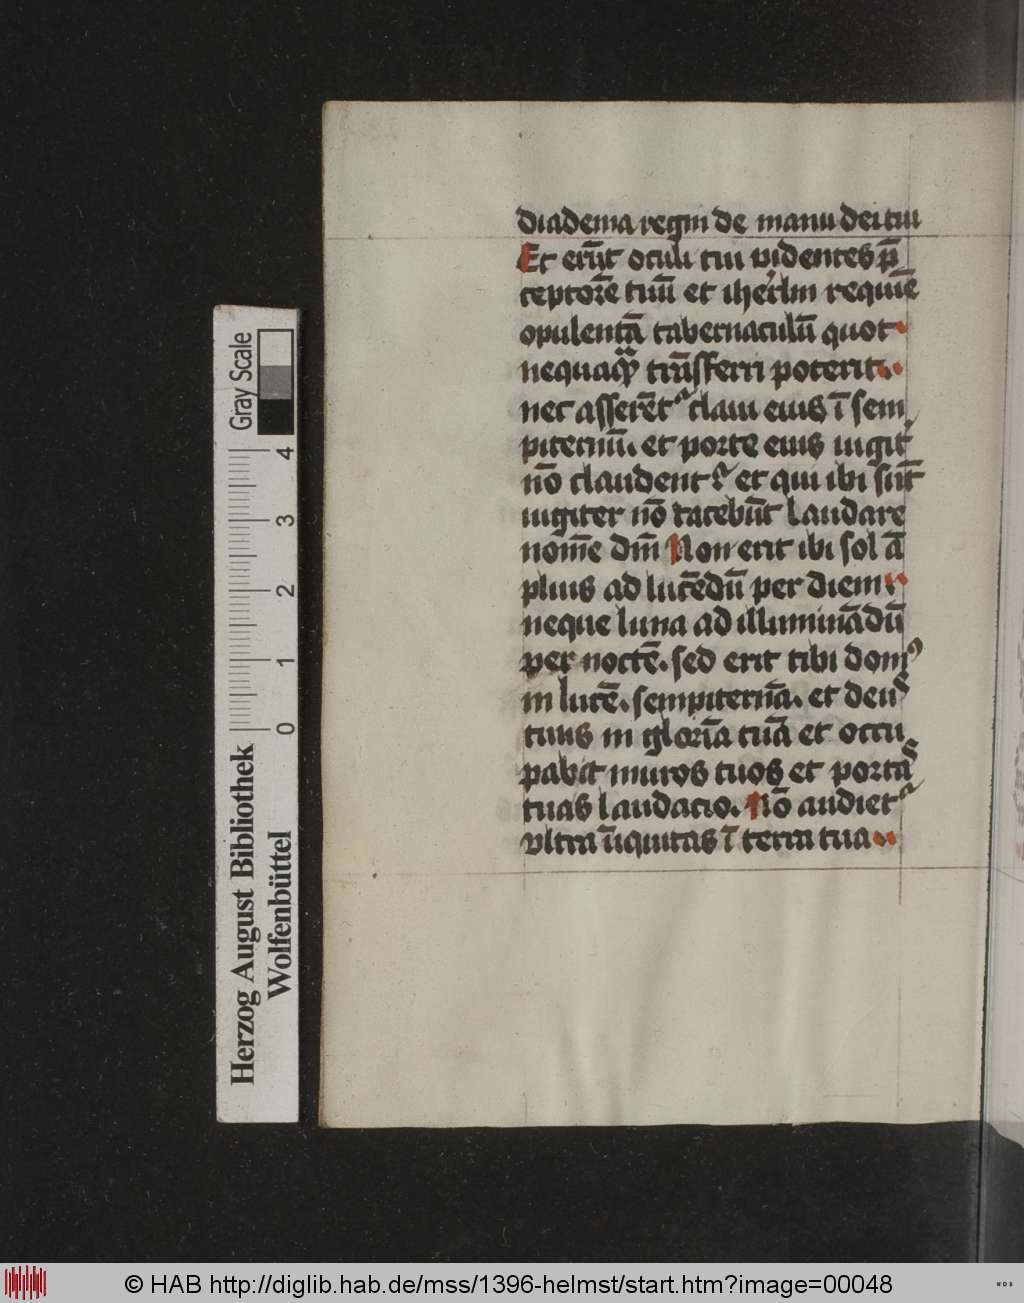 diadema regni de manu dei tui
Et erūt oculi tui videntes p̄
ceptorē tuū et iherlm requiē
opulentā tabernaculū quot
nequaqͣꝫ trāsferri poterit
nec afferēt᷑ claui eius ī sem
piternū. et porte eius iugit᷑
nō claudent᷑ et qui ibi sūt
iugiter nō tacebūt laudare
nom̄e dn̄i Non erit ibi sol ā
plius ad lucēdū per diem
neque luna ad illuminādū
per noctē. sed erit tibi domꝰ
in lucē. sempiternā. et deus
tuus in glorīa tuā et occu
pabit muros tuos et portas
tuas laudacio. Nō audiet᷑
vltra īiquitas ī terra tua
Gray Scale
4 3 2 1 0
Herzog August Bibliothek
Wolfenbüttel
© HAB http://diglib.hab.de/mss/1396-helmst/start.htm?image=00048